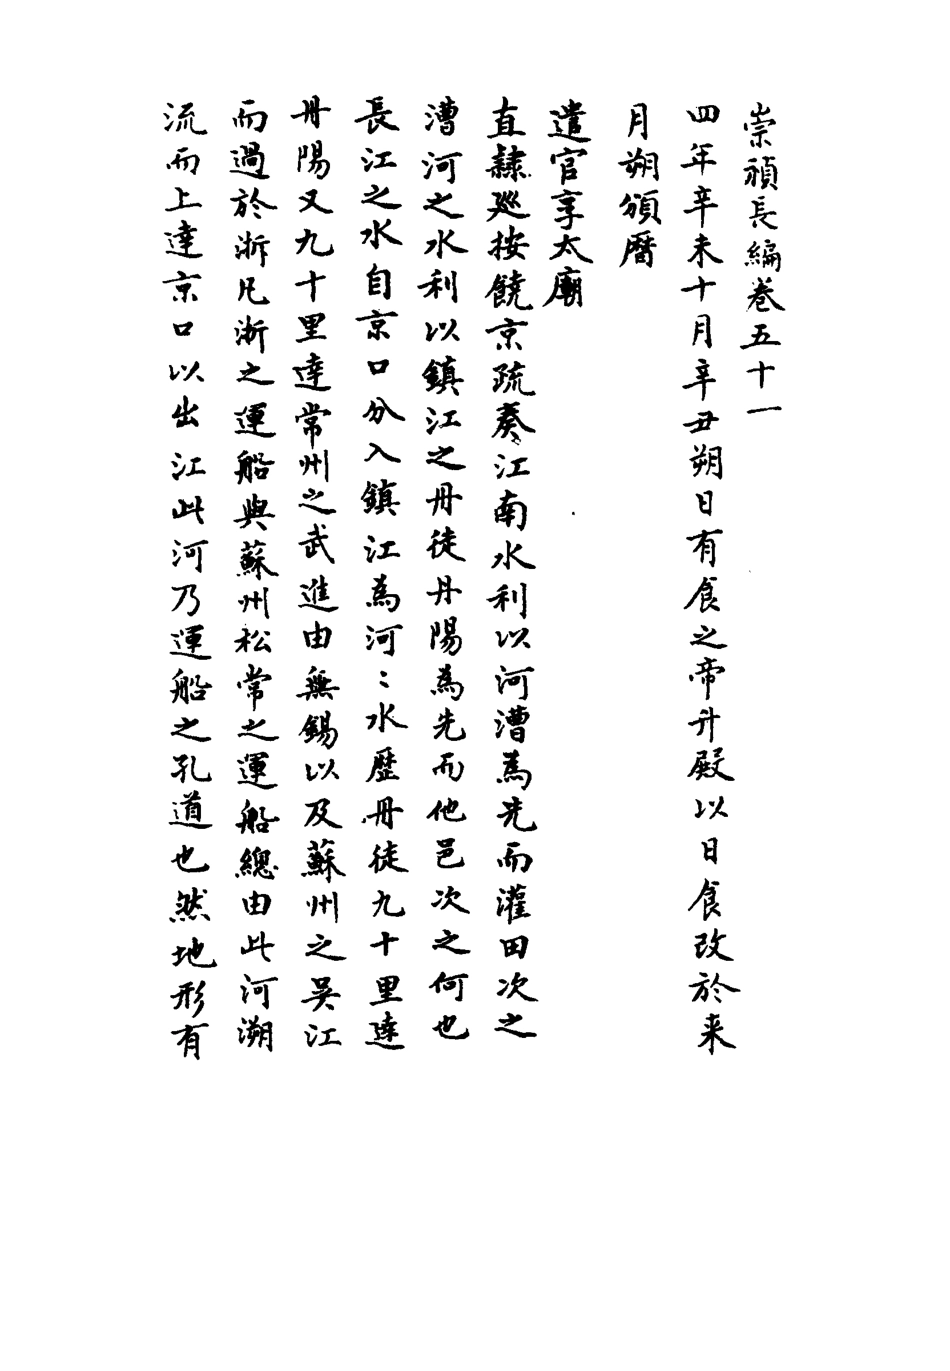 崇禎長編卷五十一
四年辛未十月辛丑朔日有食之帝升殿以日食改於来
月朔頒曆
遣官享太廟
直隸廵按饒京疏奏江南水利以河漕為先而灌田次之
漕河之水利以鎮江之丹徒丹陽為先而他邑次之何也
長江之水自京口分入鎮江為河〻水歷丹徒九十里達
丹陽又九十里達常州之武進由無錫以及蘇州之吴江
而過於浙凡浙之運船與蘇州松常之運船總由此河溯
流而上達京口以出江此河乃運船之孔道也然地形有